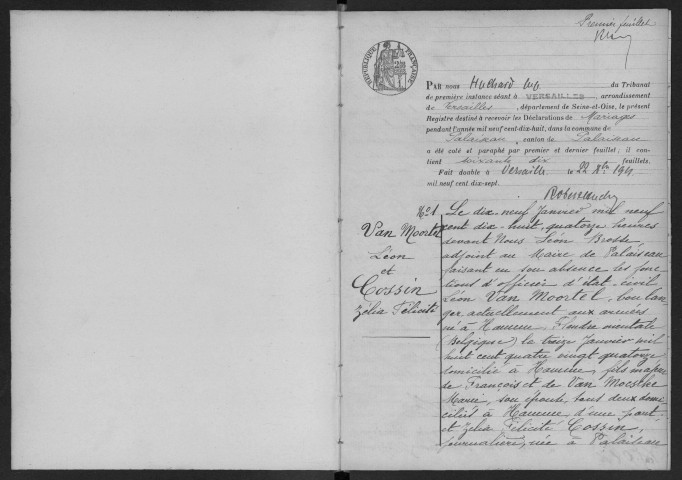 Premier feuillet
RÉPUBLIQUE FRANÇAISE
PAR NOUS Huchard du Tribunal
de première instance séant à VERSAILLES, arrondissement
de Versailles, département de Seine-et-Oise, le présent
Registre destiné à recevoir les Déclarations de Mariages
pendant l'année mil neuf cent-dix-huit, dans la commune de
Palaiseau, canton de Palaiseau
a été coté et paraphé par premier et dernier feuillet; il con-
tient soixante dix feuillets.
Fait double à Versailles le 22 Xbre 191
mil neuf cent dix-sept.
No 1
Van Moortel
Léon
et
Cossin
Zélia Félicité
Le dix-neuf Janvier mil neuf
cent dix-huit, quatorze heures
devant Nous Léon Brosse
adjoint au Maire de Palaiseau
faisant en son absence les fonc
tions d'officier d'état-civil
Léon Van Moortel, boulan
ger actuellement aux armées
né à Hamme, Flandre orientale
(Belgique) le treize Janvier mil
huit cent quatre vingt quatorze
domicilié à Hamme, fils majeur
de François et de Van Moesthe
Marie, son épouse tous deux domi
ciliés à Hamme d'une part-
et Zélia Félicité Cossin,
journalière, née à Palaiseau